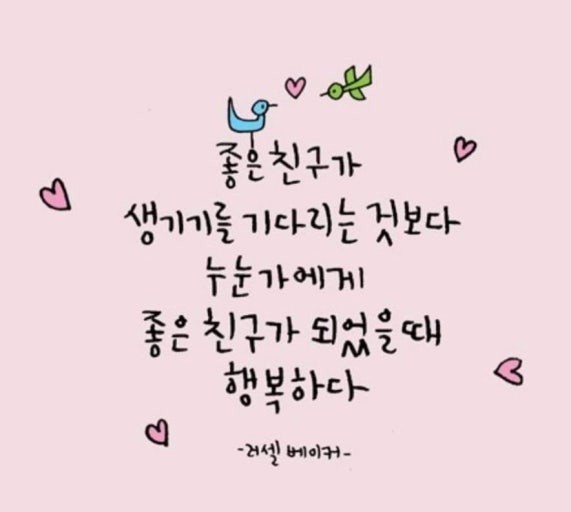 좋은친구가
생기기를 기다리는 것보다
누눈가에게
좋은 친구가 되었을때
행복하다
-러셀 베이커-